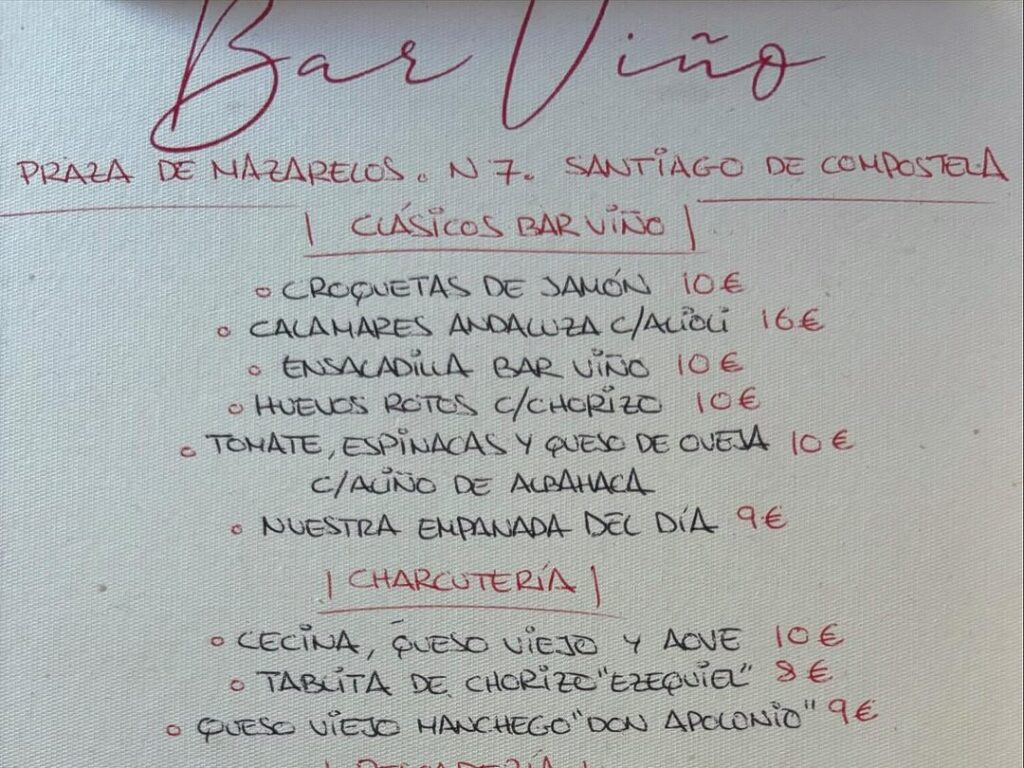 Bar Viño
PRAZA DE MAZARELOS. N 7. SANTIAGO DE COMPOSTELA
| CLÁSICOS BAR VIÑO |
○ CROQUETAS DE JAMÓN 10€
○ CALAMARES ANDALUZA C/ALIOLI 16€
○ ENSALADILLA BAR VIÑO 10€
○ HUEVOS ROTOS C/CHORIZO 10€
○ TOMATE, ESPINACAS Y QUESO DE OVEJA 10€
C/ALIÑO DE ALBAHACA
○ NUESTRA EMPANADA DEL DÍA 9€
| CHARCUTERÍA |
○ CECINA, QUESO VIEJO Y AOVE 10€
○ TABLITA DE CHORIZO "EZEQUIEL" 8€
○ QUESO VIEJO MANCHEGO "DON APOLONIO" 9€